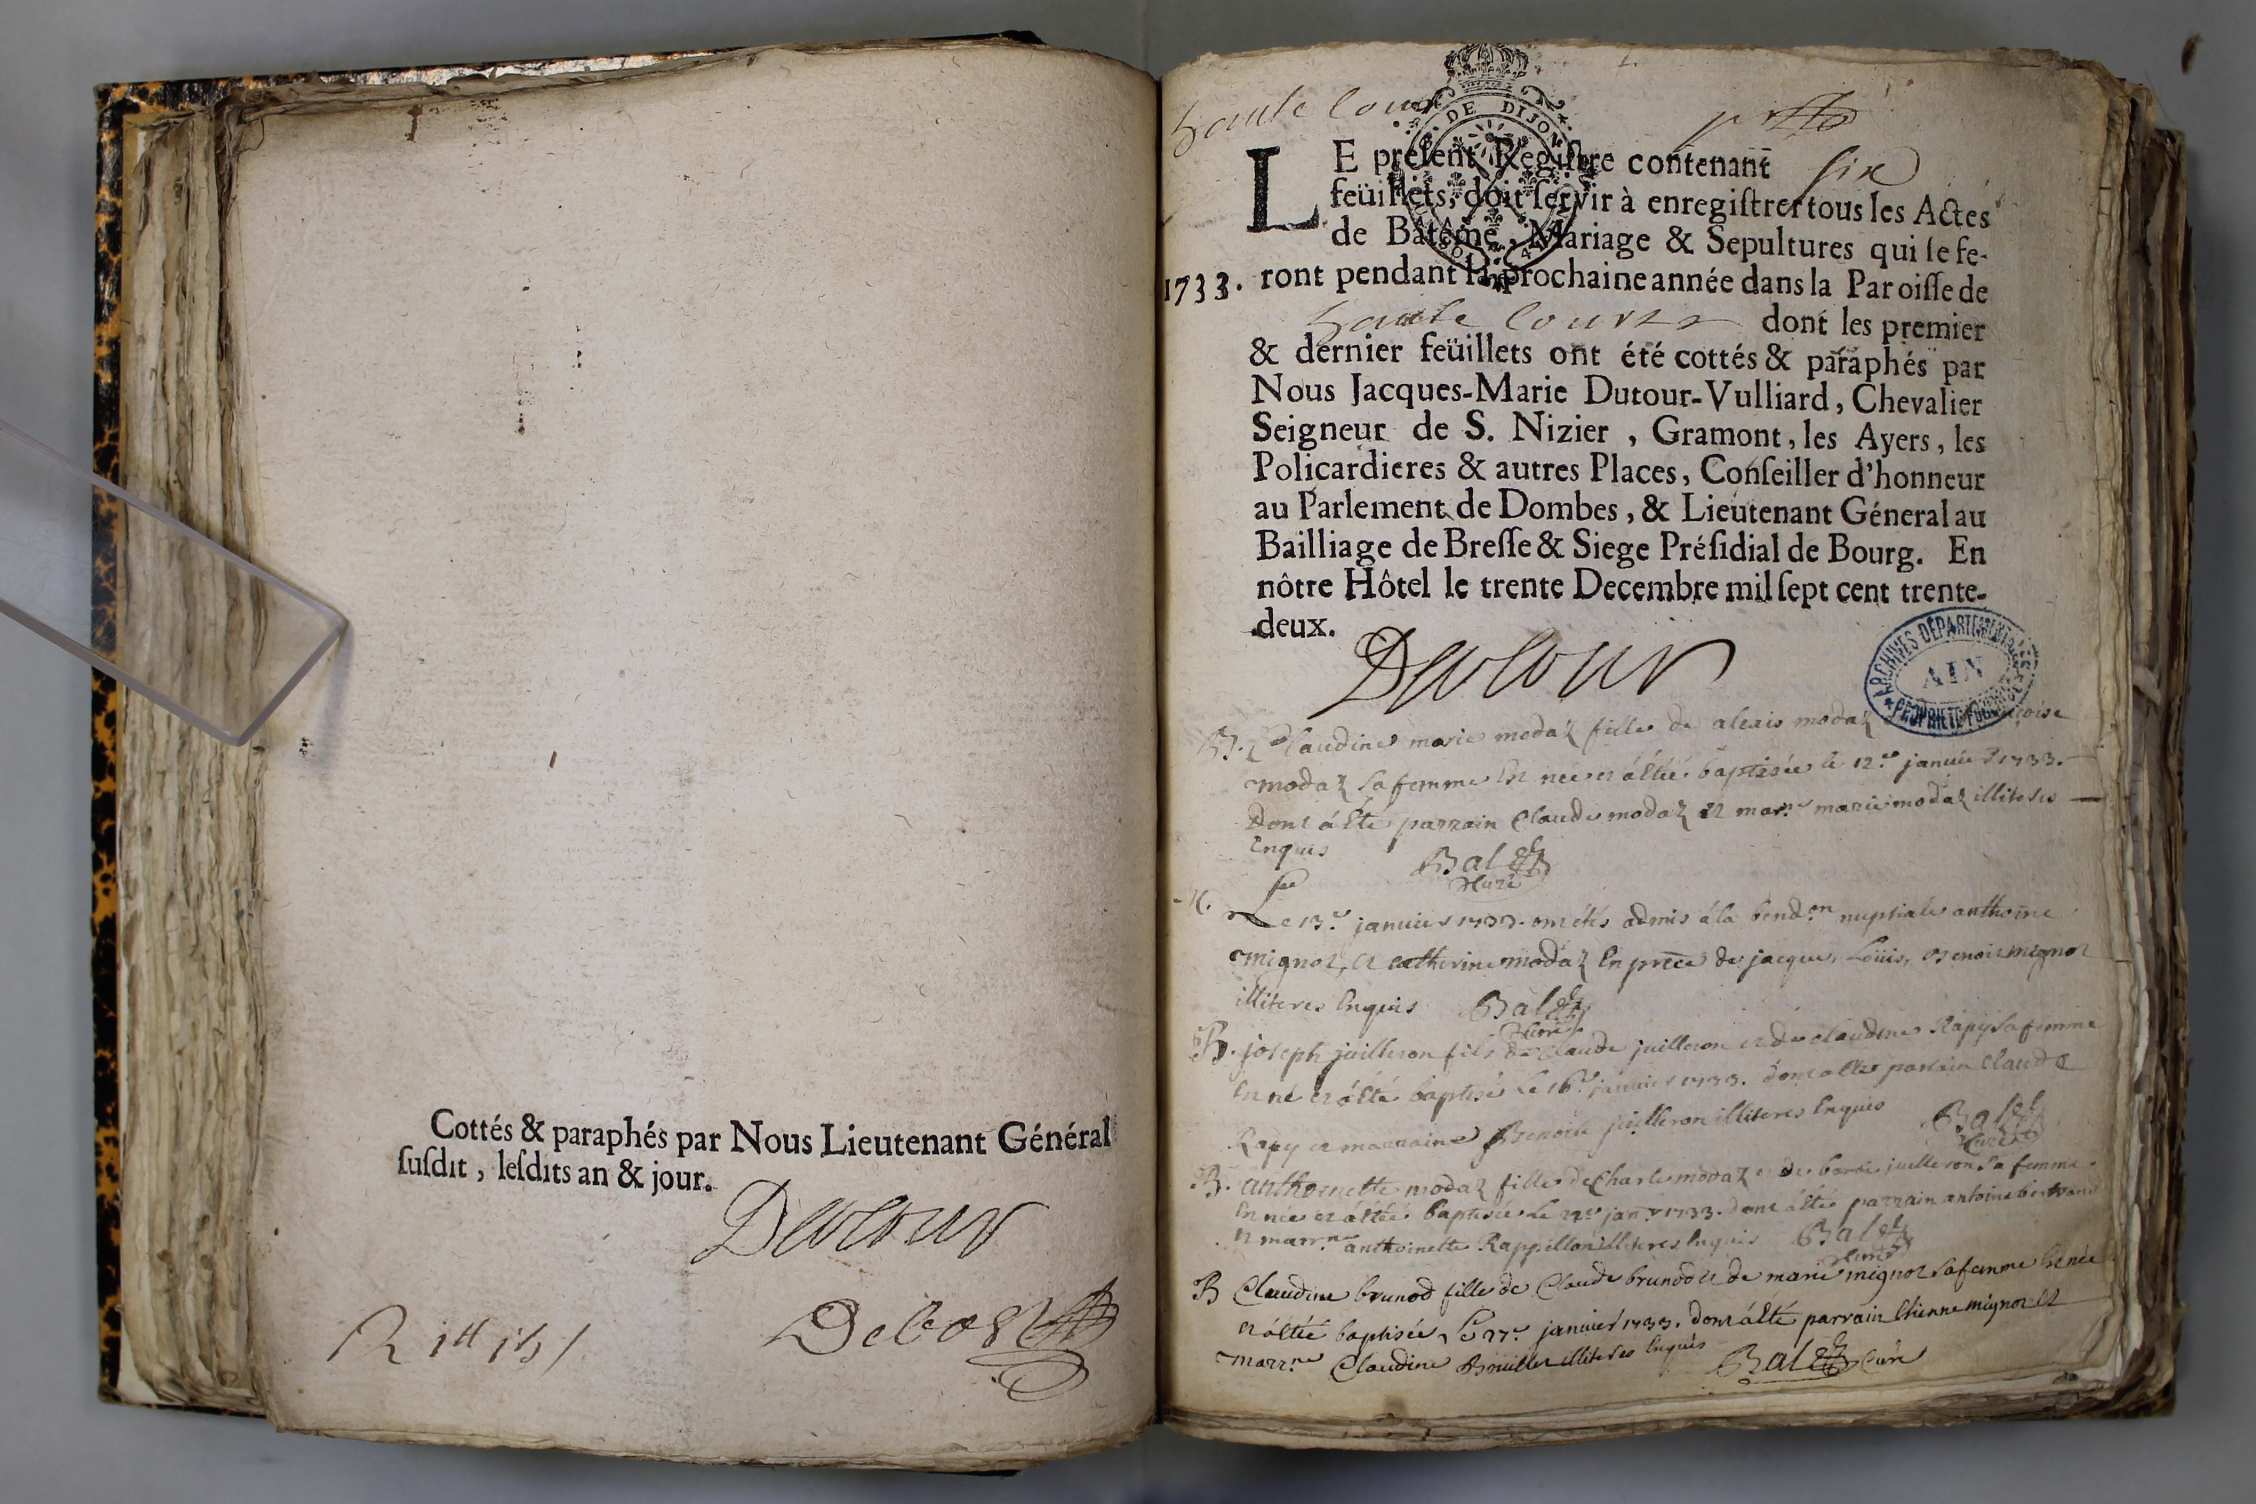 Cottés & paraphés par Nous Lieutenant Général
ſuſdit, leſdits an & jour.
Dutour
haute cour
DE DIJON
LE preſent Regiſtre contenant ſix
feüillets, doit ſervir à enregiſtrer tous les Actes
de Bâtême, Mariage & Sepultures qui ſe fe-
1733. ront pendant la prochaine année dans la Paroiſſe de
haute cour dont les premier
& dernier feüillets ont été cottés & paraphés par
Nous Jacques-Marie Dutour-Vulliard, Chevalier
Seigneur de S. Nizier, Gramont, les Ayers, les
Policardieres & autres Places, Conſeiller d'honneur
au Parlement de Dombes, & Lieutenant Géneral au
Bailliage de Breſſe & Siege Préſidial de Bourg. En
nôtre Hôtel le trente Decembre mil ſept cent trente-
deux.
Dutour
ARCHIVES DÉPARTEMENTALES
AIN
PROPRIÉTÉ PUBLIQUE
B. Claudine marie modaz fille de alexis modaz
modaz sa femme est née et a été baptisée le 12.e janvier 1733.
Dont a été parrain Claude modaz et marr.ne marie modaz illiteres
enquis Balet
Curé
Le 13.e janvier 1733. ont étés admis à la bend.on nuptiale anthoine
mignot, et catherine modaz en pnce de jacques, Loüis, benoit mignot
illiteres enquis Balet
Curé
B. joseph juilleron fils de Claude juilleron et de claudine Rapy sa femme
est né et a été baptisé le 16.e janvier 1733. dont a été parrain Claude
Rapy et marraine Benoite juilleron illiteres enquis Balet
Curé
B. anthoinette modaz fille de Charle modaz et de juilleron sa femme
est née et a été baptisée le jan.r 1733. dont a été parrain antoine bertrand
et marr.ne anthoinette Rappillon illiteres enquis Balet
Curé
B Claudine brunod fille de Claude brunod et de marie mignot sa femme est née
et a été baptisée le 27.e janvier 1733. dont a été parrain Etienne mignot et
marr.ne Claudine Bouillet illiteres enquis Balet Curé